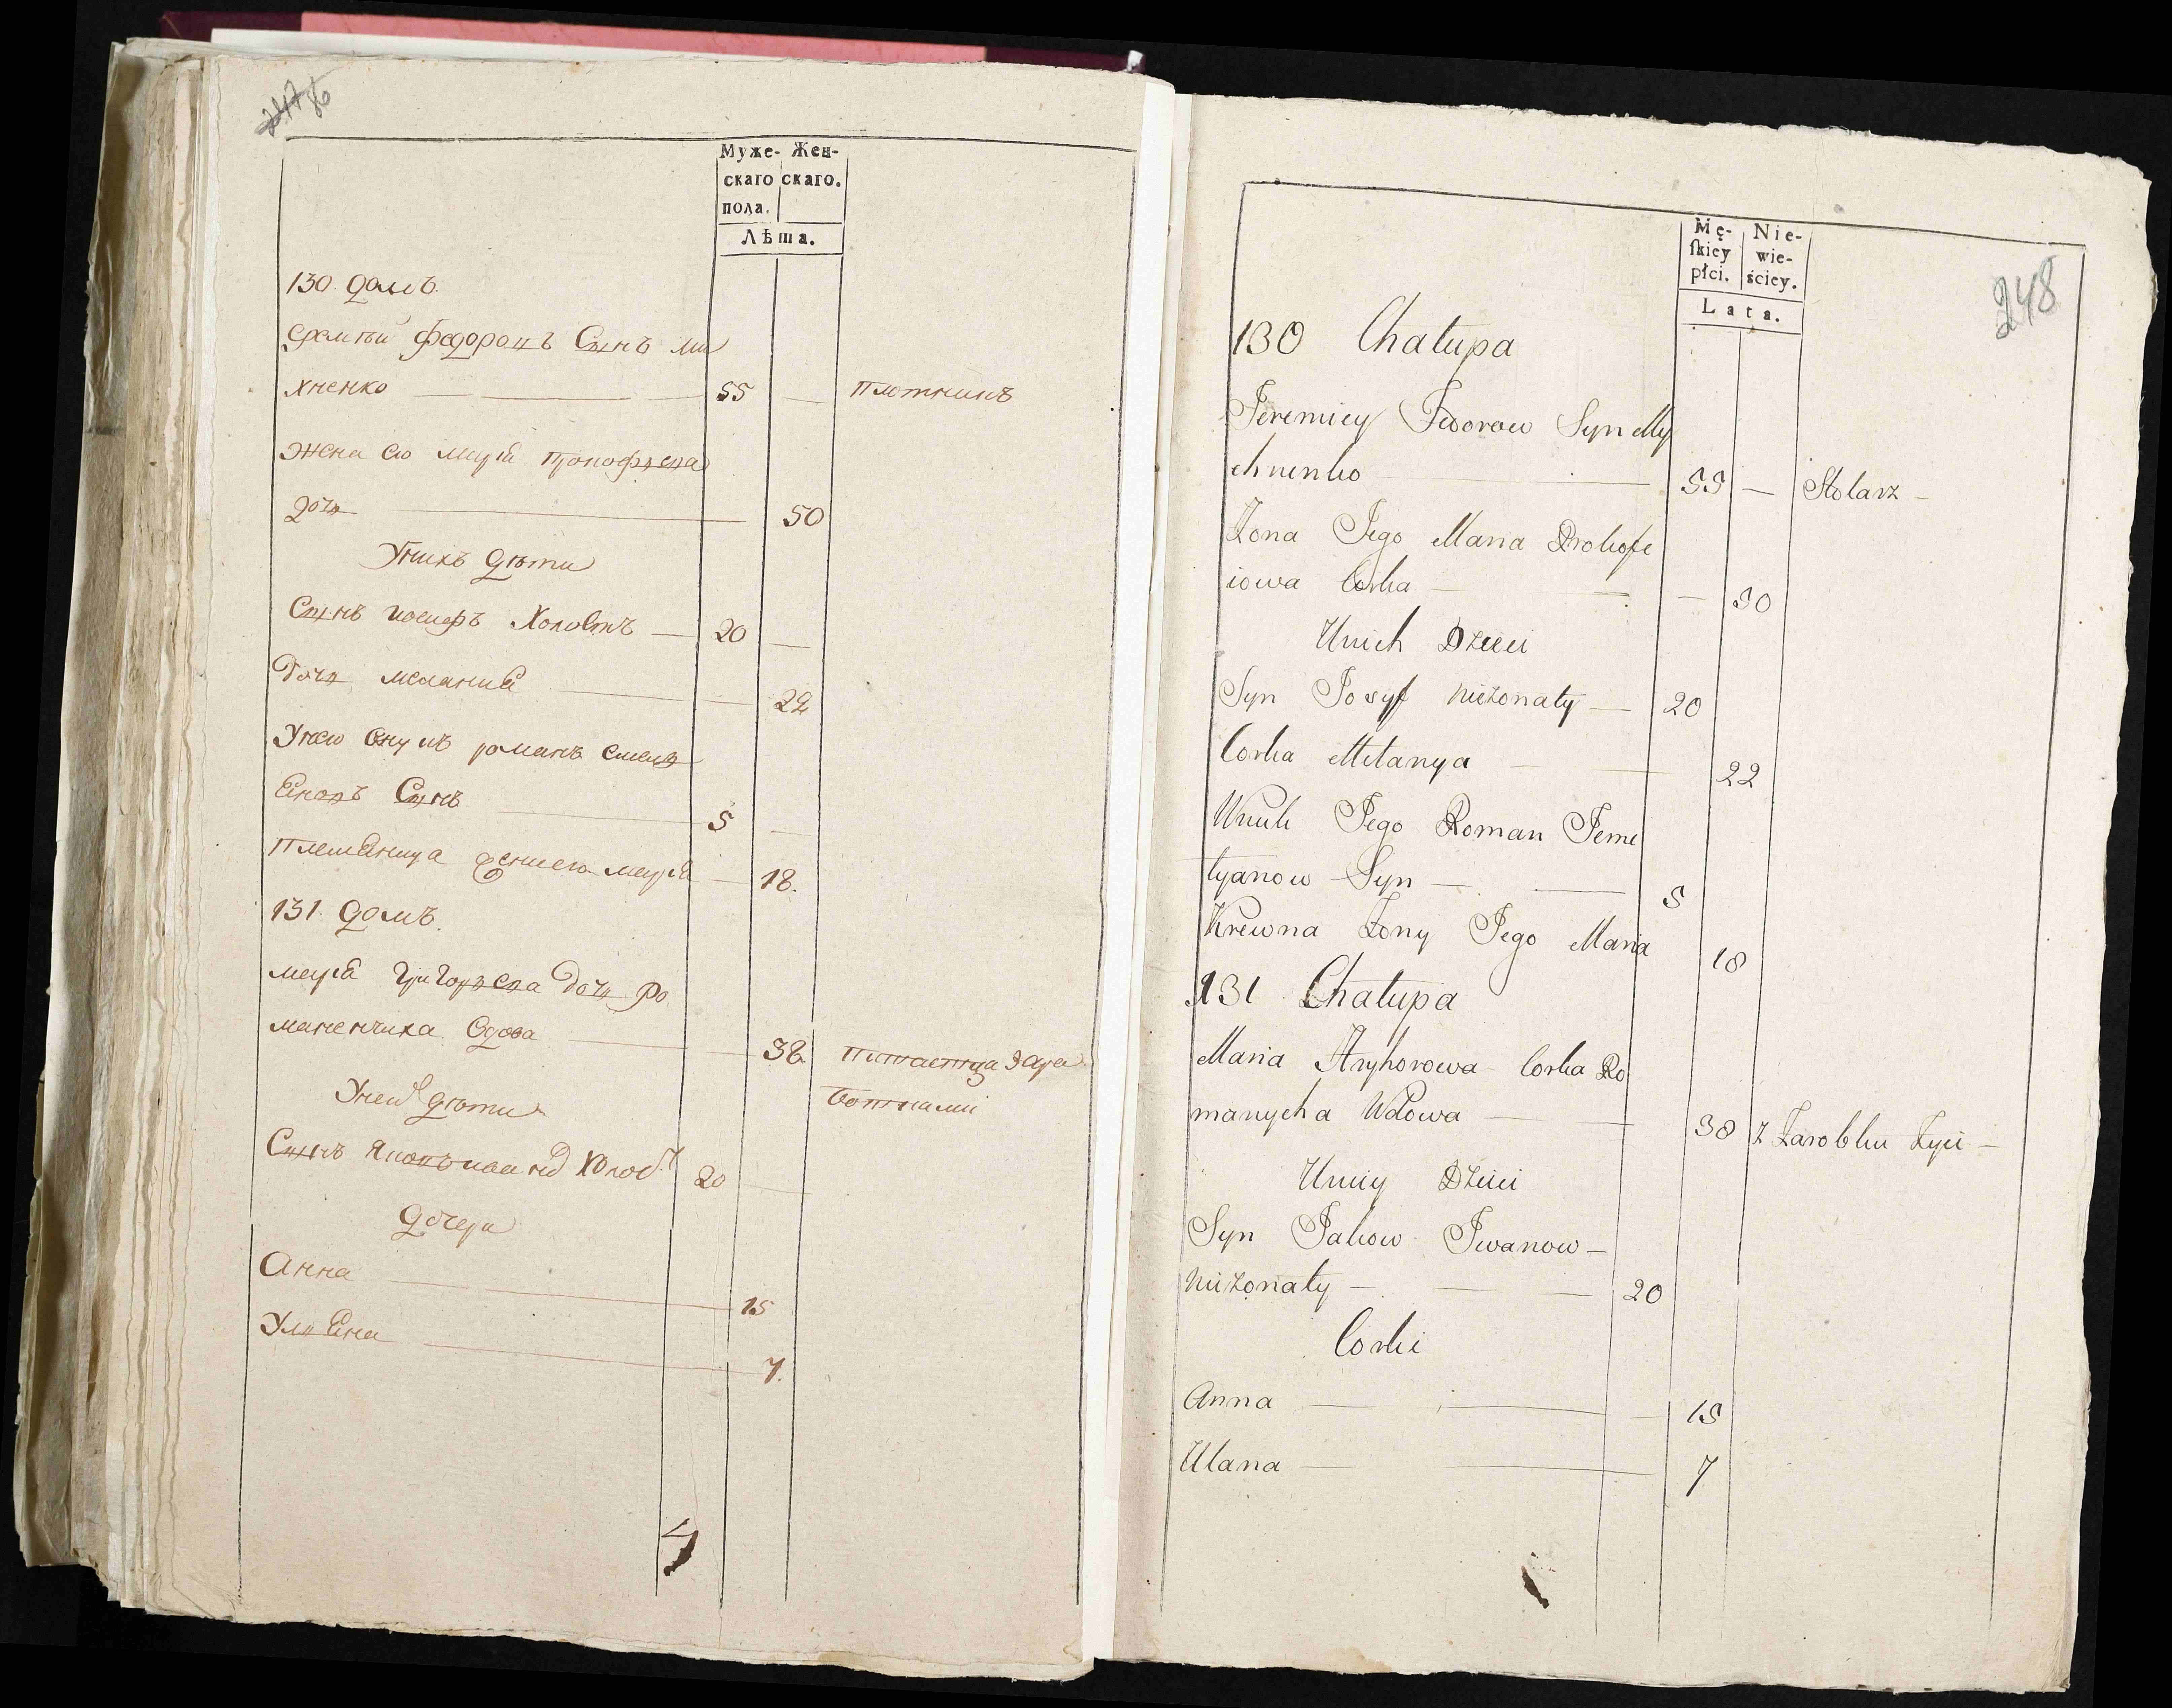 86
Муже- Жен-
скаго скаго.
пола.
Лѣта.
130. домъ.
Еремѣй Федоровъ Сынъ Ми
хненко — 55 — Плотникъ
Жена его марія Прокофьева
дочь — 50
У нихъ дѣти
Сынъ иосифъ Холостъ — 20 —
Дочь меланиѣ — 22
У него внукъ романъ емелья
ѣновъ Сынъ — 5 —
Племѣница жены его марія — 18.
131. домъ.
марія Григорьева дочь Ро
маненчиха вдова — 38. питается зара
У неи дѣти ботками
Сынъ Яковъ ивановъ Холос. 20 —
дочери
Анна — 15
Ульѣна — 7.
248
Mę- Nie-
skiey wie-
płci. ściey.
Lata.
130 Chałupa
Jeremiey Fedorow Syn My
chnenko — 55 — Stolarz —
Żona Jego Maria Prokofe
iowa Corka — — 50
U nich Dzieci
Syn Josyf nieżonaty — 20
Corka Melanya — 22
Wnuk Jego Roman Jeme
lyanow Syn — 5
Krewna Żony Jego Maria 18
131 Chałupa
Maria Hryhorowa Corka Ro
manycha Wdowa — 38 z Zarobku Żyie —
U niey Dzieci
Syn Jakow Iwanow —
nieżonaty — 20
Corki
Anna — 15
Ulana — 7